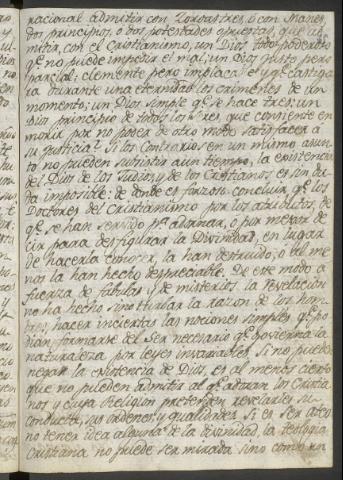 racional admitir con Zoroastres, ò con Manes,
dos principios, ò dos potestades opuestas, que ad-
mitir, con el cristianismo, un Dios todo poderoso
qe. no puede impedir el mal; un Dios justo pero
parcial; clemente pero implacable y qe. castiga-
ra durante una eternidad los crimenes de un
momento; un Dios simple qe. se hace tres; un
Dios principio de todos los seres que consiente en
morir por no poder de otro modo satisfacer à
su justicia. Si los contrarios en un mismo asun-
to no pueden subsistir à un tiempo, la existencia
del Dios de los Judios, y de los Cristianos es sin du-
da imposible: de donde es forzoso concluir qe. los
Doctores del Cristianismo por los atributos, de
qe. se han servido pa. adornar, ò por mejor de-
cir para desfigurar la Divinidad, en lugar
de hacerla conocer, la han destruido; ò al me-
nos la han hecho despreciable. De este modo a
fuerza de fabulas y de misterios, la revelacion
no ha hecho sino turbar la razon de los hom-
bres; hacer inciertas las nociones simples qe. po-
dian formarse del Ser necesario qe. govierna la
naturaleza por leyes invariables. Si no puede
negar la existencia de Dios, es al menos cierto
que no pueden admitir al qe. adoran los Cristia-
nos y cuya Religion pretenden revelarles su
conducta, sus ordenes, y qualidades. Si es ser ateo
no tener idea alguna de la divinidad, la teologia
Cristiana no puede ser mirada sino como un